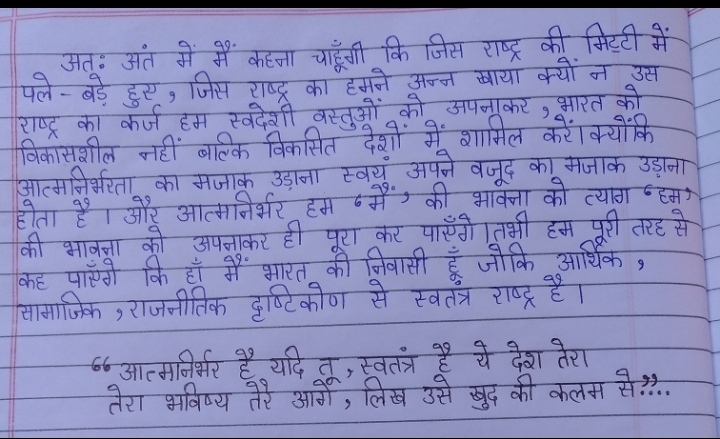 अतः अंत में मैं कहना चाहूँगी कि जिस राष्ट्र की मिट्टी में
पले - बड़े हुए , जिस राष्ट्र का हमने अन्न खाया क्यों न उस
राष्ट्र का कर्ज हम स्वदेशी वस्तुओं को अपनाकर , भारत को
विकासशील नहीं बल्कि विकसित देशों में शामिल करें। क्योंकि
आत्मनिर्भरता का मजाक उड़ाना स्वयं अपने वजूद का मजाक उड़ाना
होता है । और आत्मनिर्भर हम ‘ मैं ’ की भावना को त्याग ‘ हम ’
की भावना को अपनाकर ही पूरा कर पाएँगे । तभी हम पूरी तरह से
कह पाएँगे कि हाँ मैं भारत की निवासी हूँ जोकि आर्थिक ,
सामाजिक , राजनीतिक दृष्टिकोण से स्वतंत्र राष्ट्र है ।
“ आत्मनिर्भर है यदि तू , स्वतंत्र है ये देश तेरा
तेरा भविष्य तेरे आगे , लिख उसे खुद की कलम से ”....